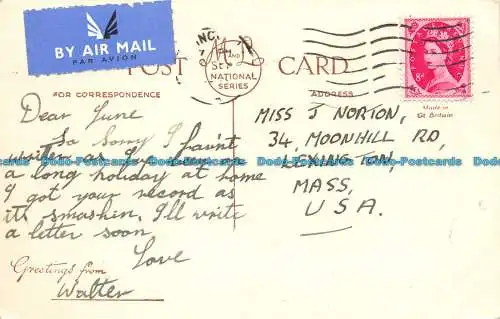 BY AIR MAIL
PAR AVION
POST CARD
M AND L
NATIONAL
SERIES
FOR CORRESPONDENCE
ADDRESS
Made in
Gt Britain
Dear June
So Sorry I haint
written
a long holiday at home
I got your record as
its smashen, I'll write
a letter soon
Love
Greetings from
Walter
MISS J NORTON,
34, MOONHILL RD,
LEXINGTON,
MASS,
U S A.
Dodo-Postcards Dodo-Postcards Dodo-Postcards Dodo-Postcards